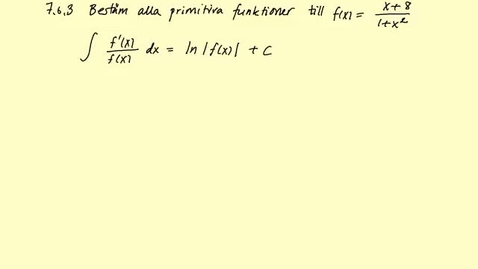 7.6.3 Bestäm alla primitiva funktioner till f(x) = \frac{x+8}{1+x^2}
∫ \frac{f'(x)}{f(x)} dx = ln |f(x)| + C